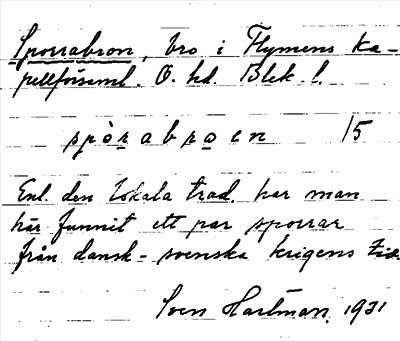 Sporrabron, bro i Flymens ka-
pellförsaml. Ö. hd. Blek. l.
spòrabroen 15
Enl. den lokala trad. har man
här funnit ett par sporrar
från dansk-svenska krigens tid.
Sven Hartman. 1931